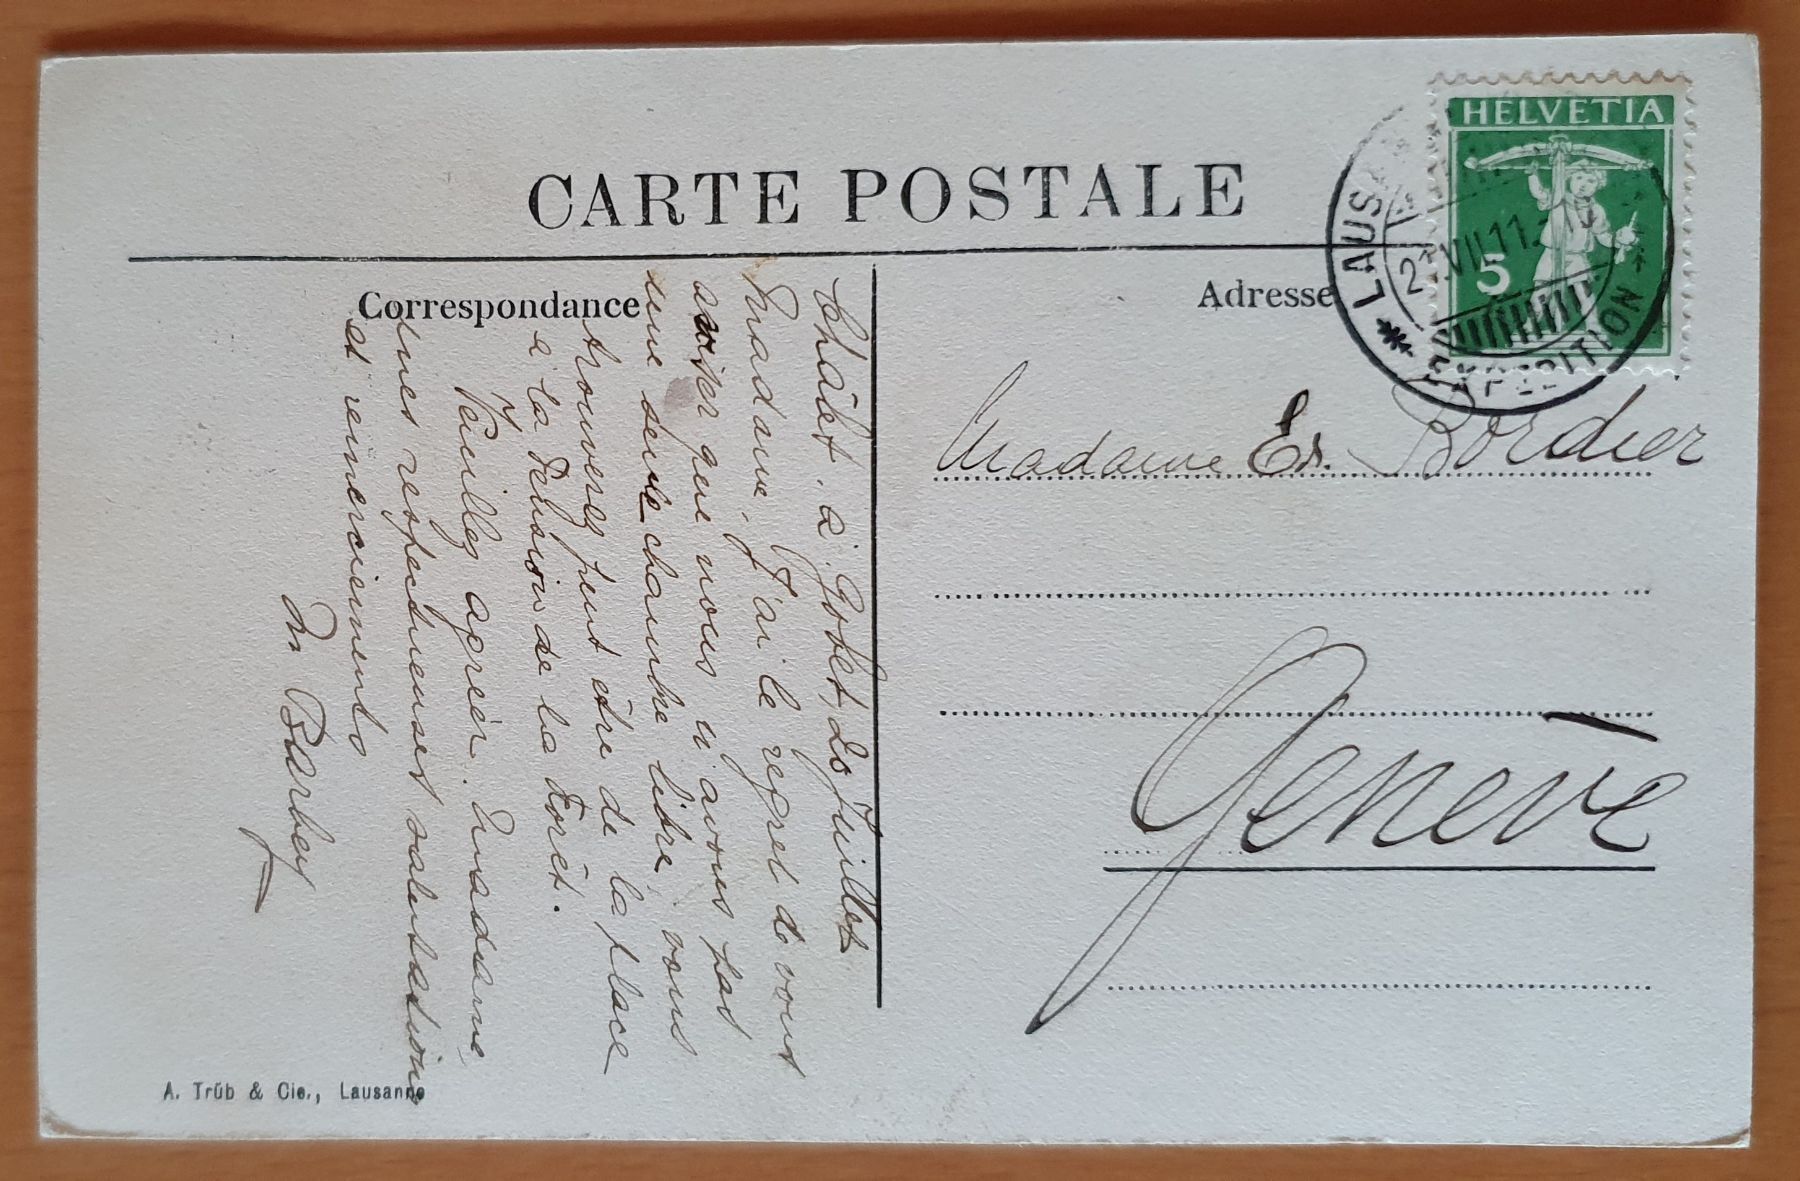 CARTE POSTALE
Correspondance
Adresse
HELVETIA
5
LAUS
2 VII.11.
EXPEDITION
Madame Er. Bordier
Genève
Châlet à Gobet, 20 Juillet
Madame, J'ai le regret de vous
aviser que nous n'avons pas
une seule chambre libre, vous
trouverez peut être de la place
a la Pension de la Forêt.
Veuillez agréer, Madame,
mes respectueuses salutations
et remerciements
M Barbey
A. Trüb & Cie., Lausanne